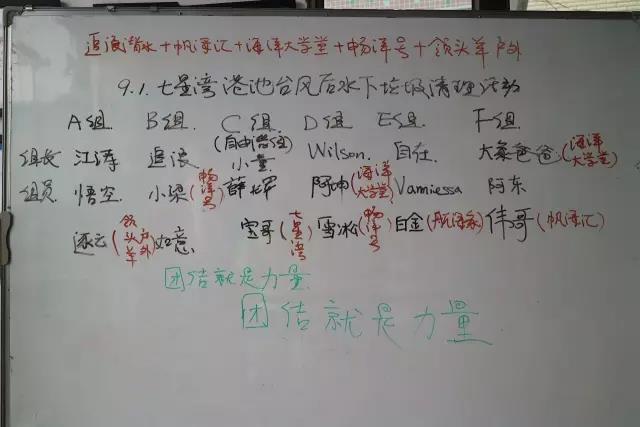 追浪潜水+帆海汇+海洋大学堂+畅洋号+领头羊户外
9.1.七星湾港池台风后水下垃圾清理活动
A组. B组. C组. D组 E组. F组
(自由潜住)
组长 江涛 追浪 小董 Wilson. 自在. 大象爸爸(海洋大学堂)
组员 悟空. 小梁(畅洋号) 薛 阿坤(海洋大学堂) Vamiessa 阿东
逐云(领头羊户外) 如意. 宝哥(七星湾) 雪冰(畅洋号) 白金 伟哥(帆海汇)
团结就是力量
团结就是力量